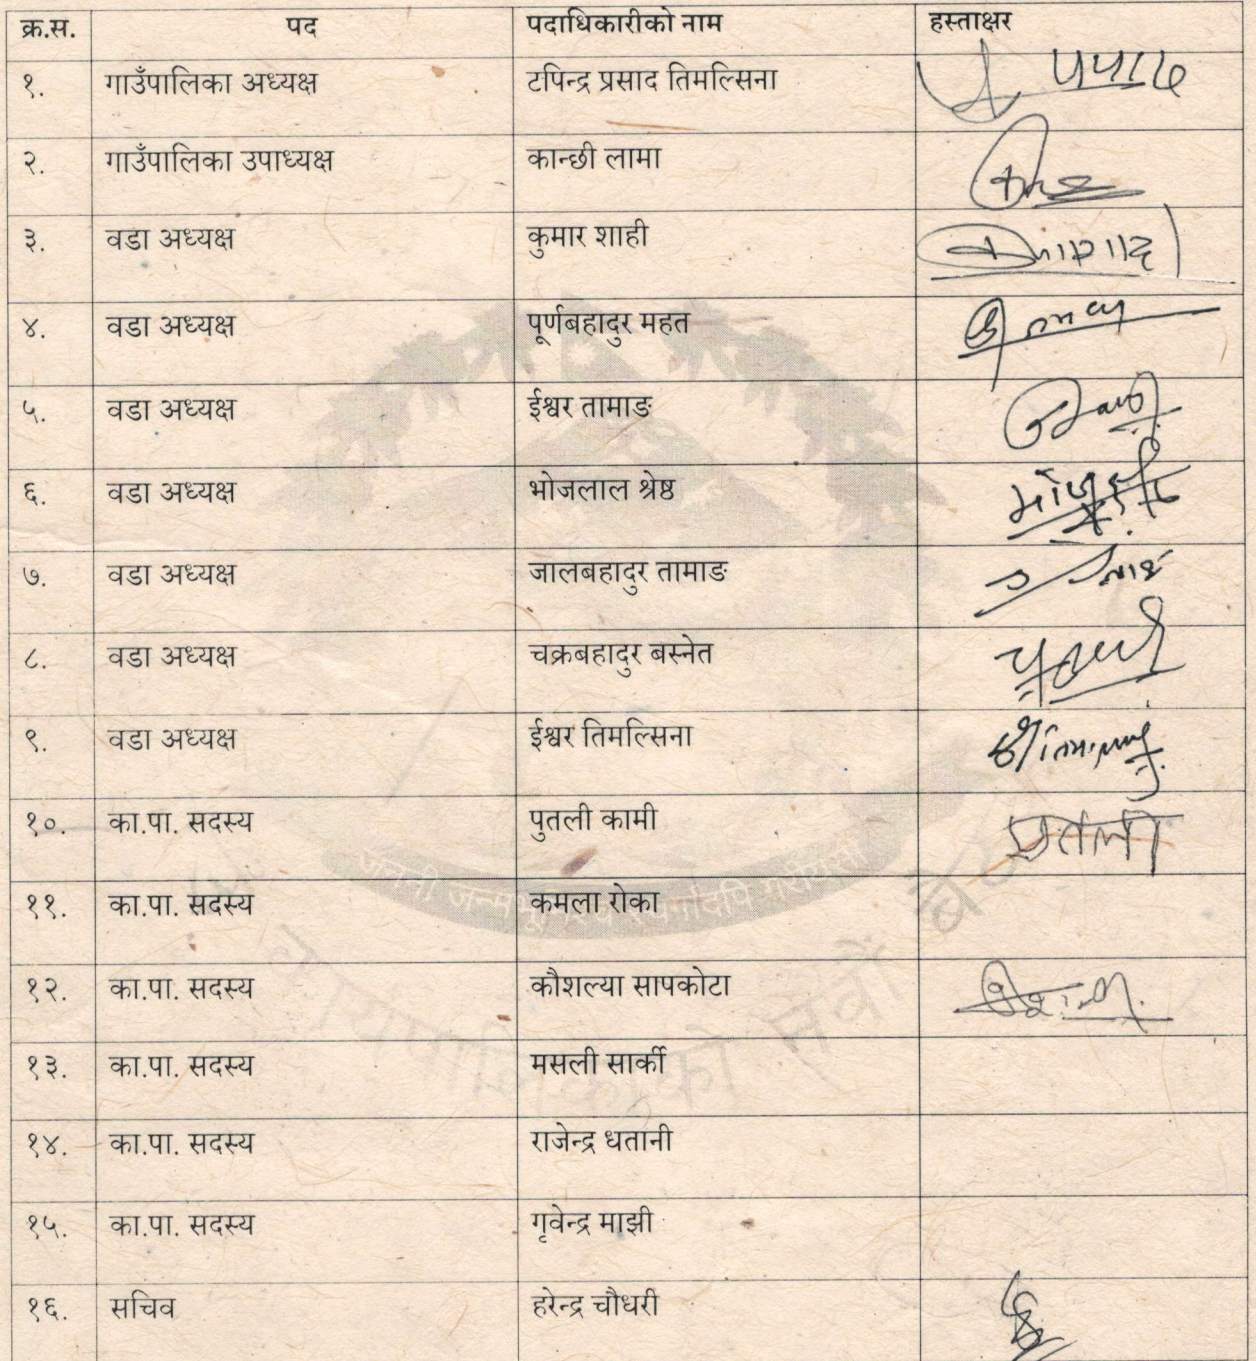 क्र.स. पद पदाधिकारीको नाम हस्ताक्षर
१. गाउँपालिका अध्यक्ष टपिन्द्र प्रसाद तिमल्सिना
२. गाउँपालिका उपाध्यक्ष कान्छी लामा
३. वडा अध्यक्ष कुमार शाही
४. वडा अध्यक्ष पूर्णबहादुर महत
५. वडा अध्यक्ष ईश्वर तामाङ
६. वडा अध्यक्ष भोजलाल श्रेष्ठ
७. वडा अध्यक्ष जालबहादुर तामाङ
८. वडा अध्यक्ष चक्रबहादुर बस्नेत
९. वडा अध्यक्ष ईश्वर तिमल्सिना
१०. का.पा. सदस्य पुतली कामी
११. का.पा. सदस्य कमला रोका
१२. का.पा. सदस्य कौशल्या सापकोटा
१३. का.पा. सदस्य मसली सार्की
१४. का.पा. सदस्य राजेन्द्र धतानी
१५. का.पा. सदस्य गृवेन्द्र माझी
१६. सचिव हरेन्द्र चौधरी